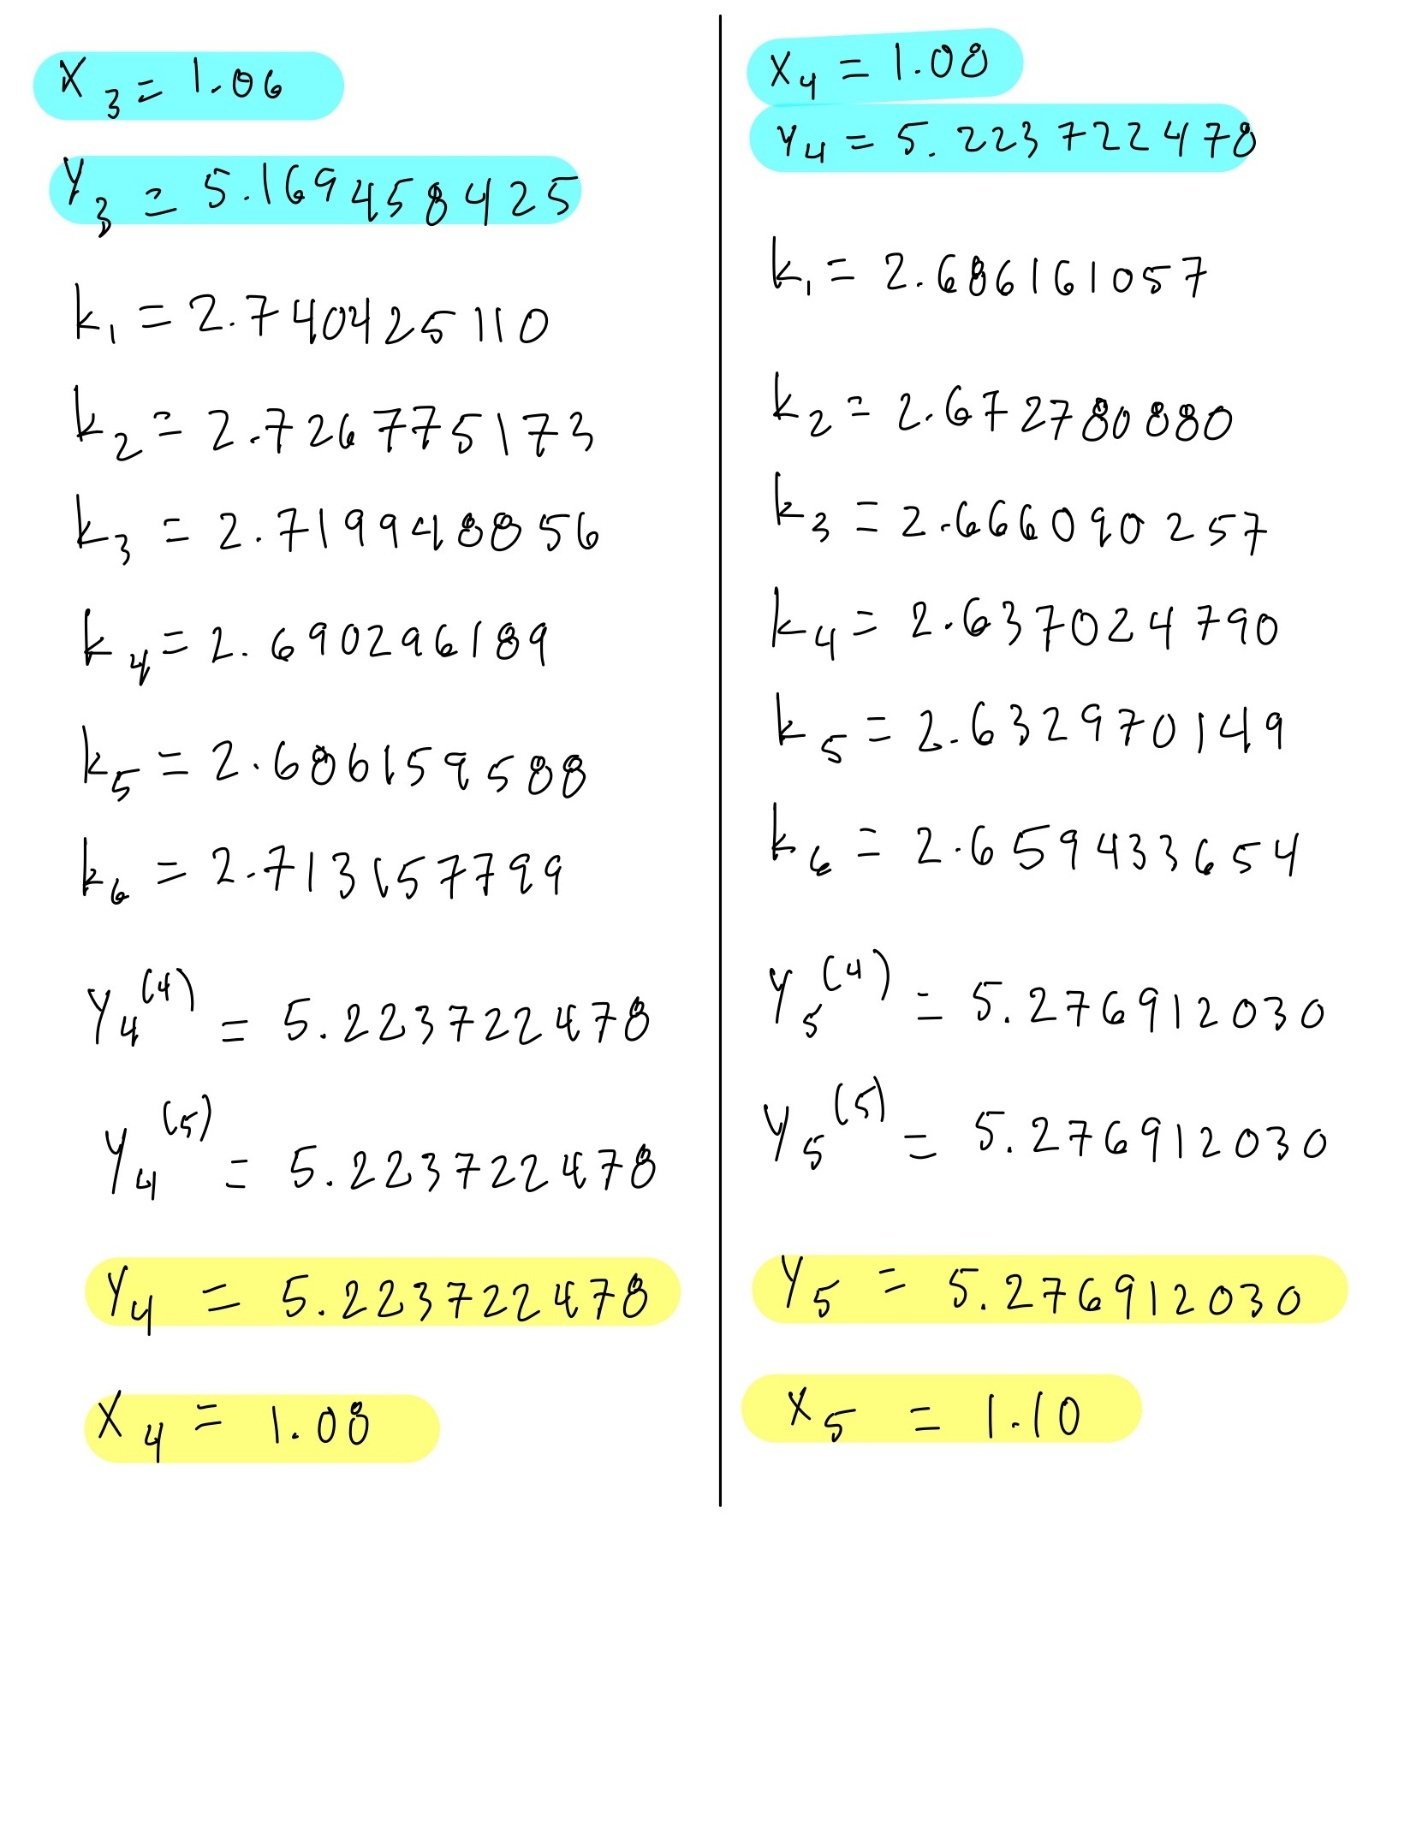 x₃ = 1.06
y₃ = 5.169458425
k₁ = 2.740425110
k₂ = 2.726775173
k₃ = 2.719948856
k₄ = 2.690296189
k₅ = 2.686159588
k₆ = 2.713157799
y₄⁽⁴⁾ = 5.223722478
y₄⁽⁵⁾ = 5.223722478
y₄ = 5.223722478
x₄ = 1.08
x₄ = 1.08
y₄ = 5.223722478
k₁ = 2.686161057
k₂ = 2.672780880
k₃ = 2.666090257
k₄ = 2.637024790
k₅ = 2.632970149
k₆ = 2.659433654
y₅⁽⁴⁾ = 5.276912030
y₅⁽⁵⁾ = 5.276912030
y₅ = 5.276912030
x₅ = 1.10